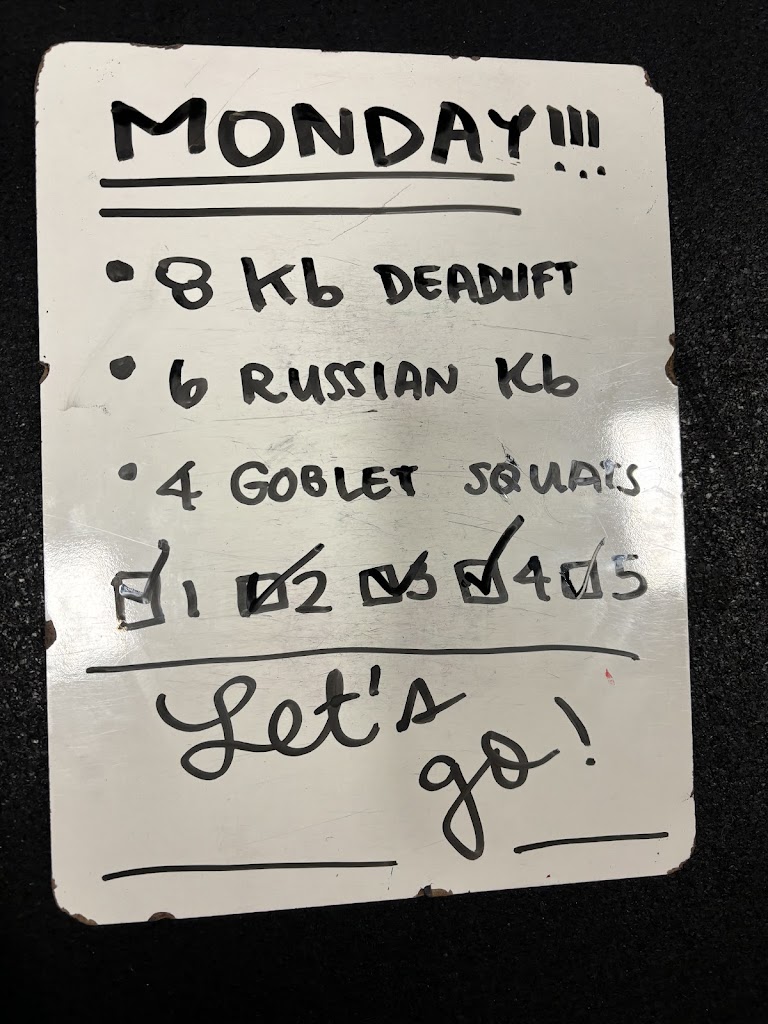 MONDAY!!!
• 8 Kb DEADLIFT
• 6 RUSSIAN Kb
• 4 GOBLET SQUATS
☑ 1 ☑ 2 ☑ 3 ☑ 4 ☑ 5
Let's
go!